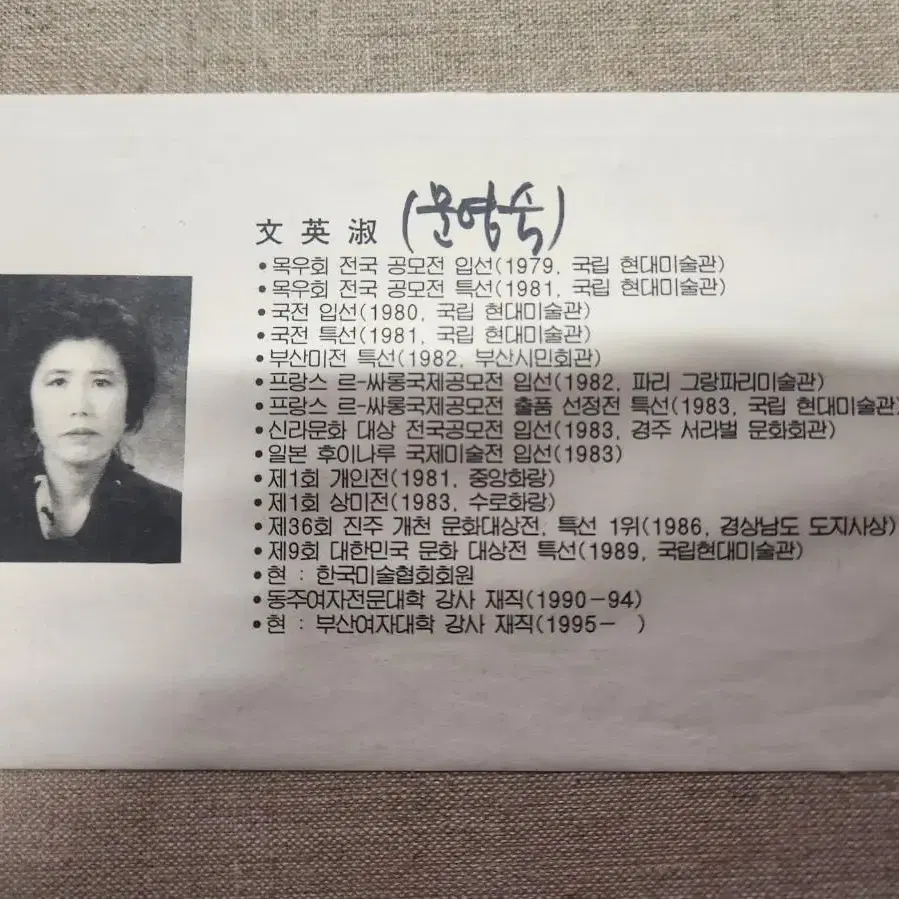 文英淑 (문영숙)
• 목우회 전국 공모전 입선(1979, 국립 현대미술관)
• 목우회 전국 공모전 특선(1981, 국립 현대미술관)
• 국전 입선(1980, 국립 현대미술관)
• 국전 특선(1981, 국립 현대미술관)
• 부산미전 특선(1982, 부산시민회관)
• 프랑스 르-싸롱국제공모전 입선(1982, 파리 그랑파리미술관)
• 프랑스 르-싸롱국제공모전 출품 선정전 특선(1983, 국립 현대미술관)
• 신라문화 대상 전국공모전 입선(1983, 경주 서라벌 문화회관)
• 일본 후이나루 국제미술전 입선(1983)
• 제1회 개인전(1981, 중앙화랑)
• 제1회 상미전(1983, 수로화랑)
• 제36회 진주 개천 문화대상전, 특선 1위(1986, 경상남도 도지사상)
• 제9회 대한민국 문화 대상전 특선(1989, 국립현대미술관)
• 현 : 한국미술협회회원
• 동주여자전문대학 강사 재직(1990-94)
• 현 : 부산여자대학 강사 재직(1995- )